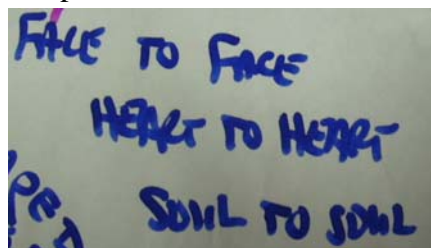 FACE TO FACE
HEART TO HEART
SOUL TO SOUL